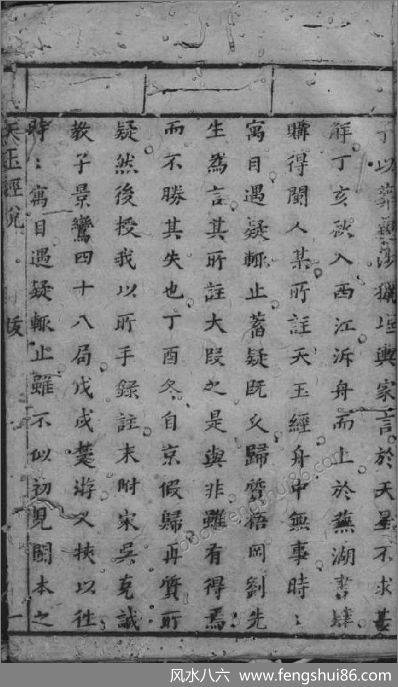 丁以葬親涉獵堪輿家言於天星不求甚
解丁亥秋入西江泝舟而上於蕪湖書肆
購得閩人某所註天玉經舟中無事時〻
寓目遇疑輒止蓄疑既久歸質梧岡劉先
生為言其所註大段之是與非雖有得焉
而不勝其失也丁酉冬自京假歸再質所
疑然後授我以所手錄註末附宋吳克誠
教子景鸞四十八局戊戌楚游又挾以往
時〻寓目遇疑輒止雖不似初見閩本之
天玉經說 跋 一
风水八六 | www.fengshui86.com